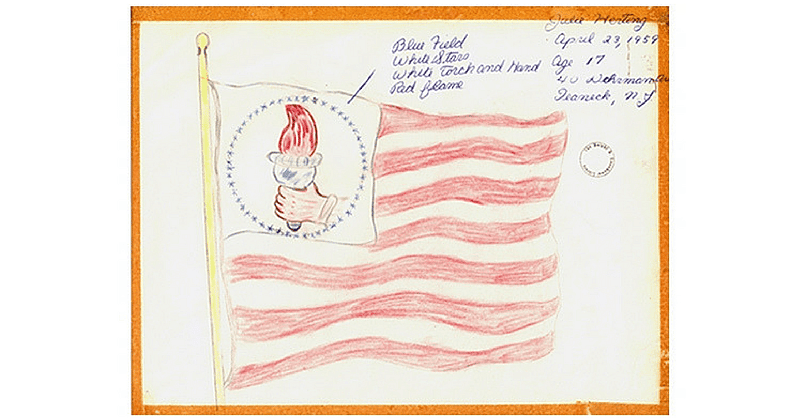 Blue Field
White Stars
White Torch and Hand
Red flame
Julie Herting
April 23, 1959
Age 17
Teaneck, N.J